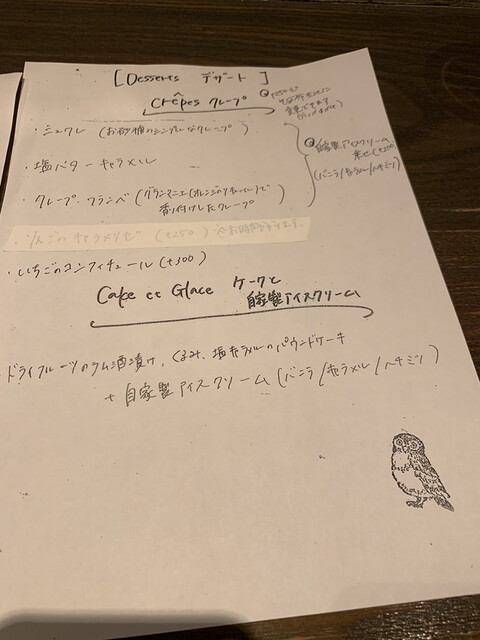 [Desserts デザート]
Crêpes クレープ
・シュクレ (お砂糖のシンプルなクレープ)
・塩バターキャラメル
・クレープ・フランベ (グランマニエ(オレンジのリキュール)で
香り付けしたクレープ
自家製アイスクリーム
(バニラ/キャラメル/ハチミツ)
・りんごのキャラメリゼ (+250) ※お時間
・いちごのコンフィチュール (+300)
Cake et Glace ケークと
自家製アイスクリーム
ドライフルーツのラム酒漬け、くるみ、塩キャラメルのパウンドケーキ
+ 自家製アイスクリーム (バニラ/キャラメル/ハチミツ)